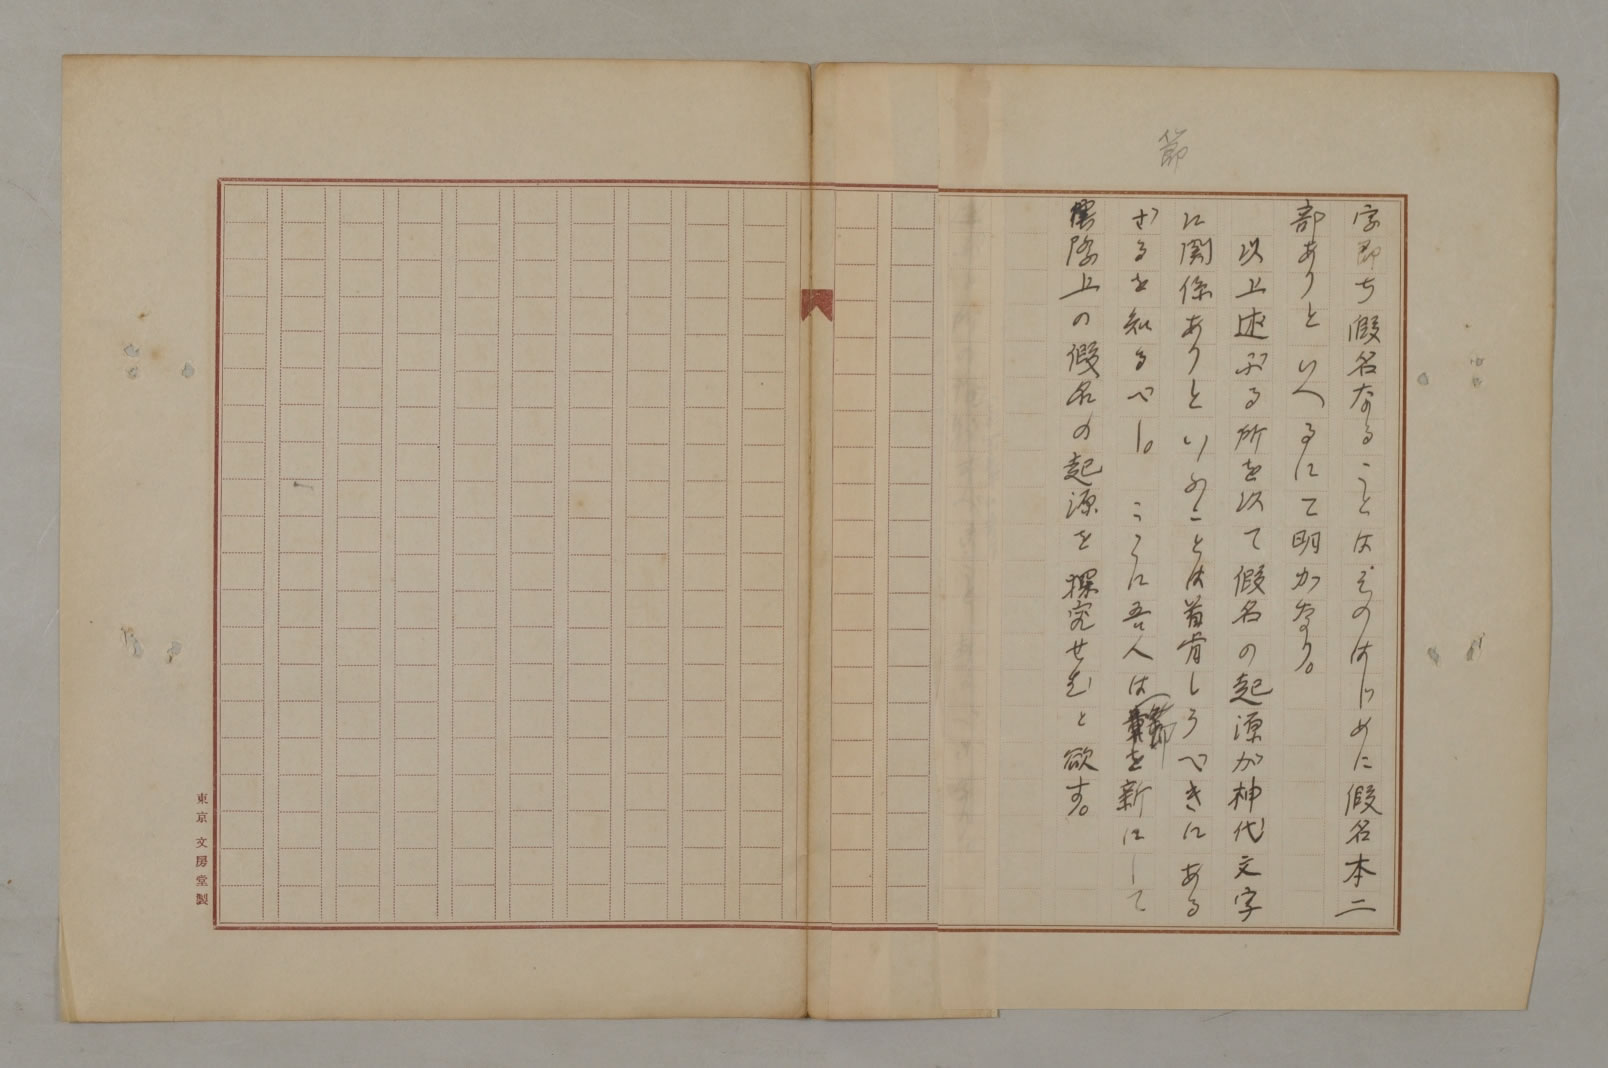 節
字即ち假名なることはそのはじめに假名本二
部ありといへるにて明かなり。
以上述ぶる所を以て假名の起源が神代文字
に関係ありといふことは首肯しうべきにある
ざるを知るべし。こゝに吾人は節を新にして
實際上の假名の起源を探究せむと欲す。
東京 文房堂製